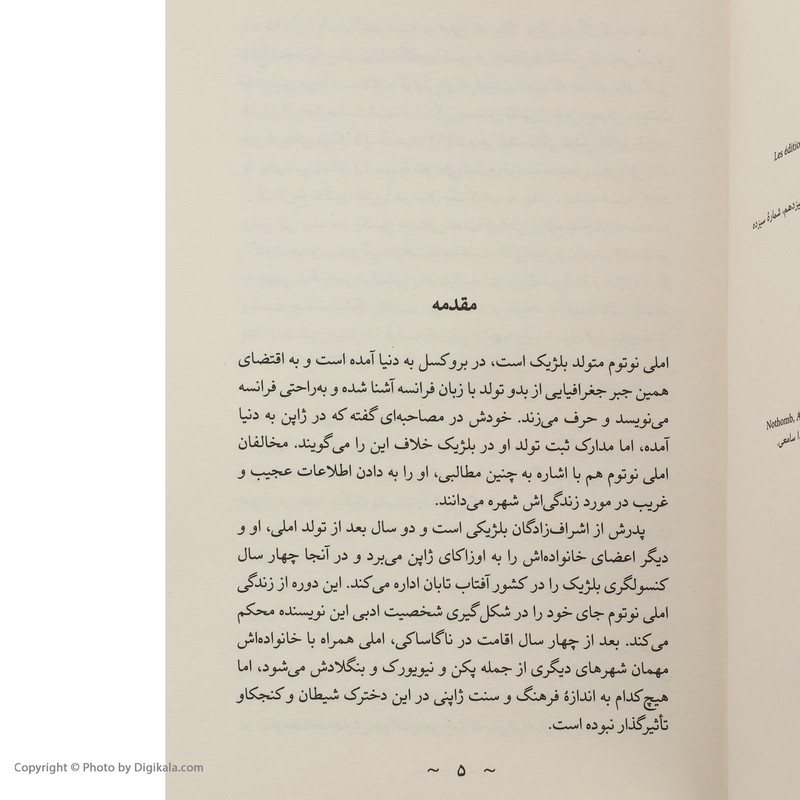 مقدمه
املی نوتوم متولد بلژیک است، در بروکسل به دنیا آمده است و به اقتضای
همین جبر جغرافیایی از بدو تولد با زبان فرانسه آشنا شده و به‌راحتی فرانسه
می‌نویسد و حرف می‌زند. خودش در مصاحبه‌ای گفته که در ژاپن به دنیا
آمده، اما مدارک ثبت تولد او در بلژیک خلاف این را می‌گویند. مخالفان
املی نوتوم هم با اشاره به چنین مطالبی، او را به دادن اطلاعات عجیب و
غریب در مورد زندگی‌اش شهره می‌دانند.
پدرش از اشراف‌زادگان بلژیکی است و دو سال بعد از تولد املی، او و
دیگر اعضای خانواده‌اش را به اوزاکای ژاپن می‌برد و در آنجا چهار سال
کنسولگری بلژیک را در کشور آفتاب تابان اداره می‌کند. این دوره از زندگی
املی نوتوم جای خود را در شکل‌گیری شخصیت ادبی این نویسنده محکم
می‌کند. بعد از چهار سال اقامت در ناگاساکی، املی همراه با خانواده‌اش
مهمان شهرهای دیگری از جمله پکن و نیویورک و بنگلادش می‌شود، اما
هیچ‌کدام به اندازهٔ فرهنگ و سنت ژاپنی در این دخترک شیطان و کنجکاو
تأثیرگذار نبوده است.
~ ۵ ~
Les éditio
سیزدهم، شمارهٔ سیزده
Nothomb, A
سامعی.
Copyright © Photo by Digikala.com